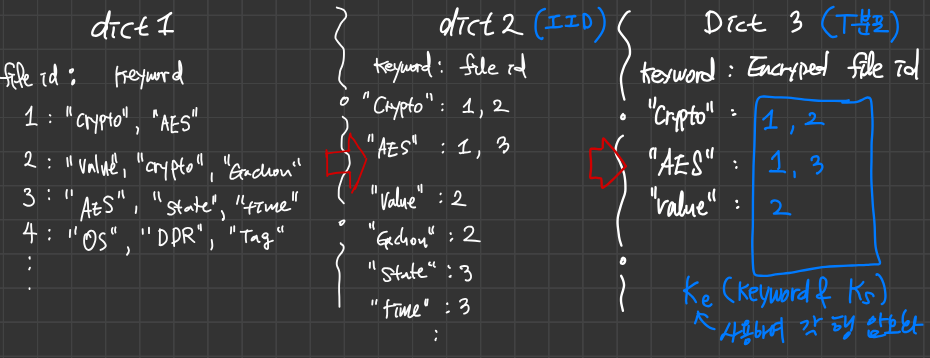 dict 1
file id : keyword
1 : "Crypto", "AES"
2 : "Value", "Crypto", "Gachon"
3 : "AES", "State", "time"
4 : "OS", "DDR", "Tag"
:
.
dict 2 (IID)
keyword : file id
"Crypto" : 1, 2
"AES" : 1, 3
"Value" : 2
"Gachon" : 2
"State" : 3
"time" : 3
:
Dict 3 (T분포)
keyword : Encryped file id
"Crypto" : 1, 2
"AES" : 1, 3
"value" : 2
Ke (keyword & Ks)
사용하여 각 행 암호화